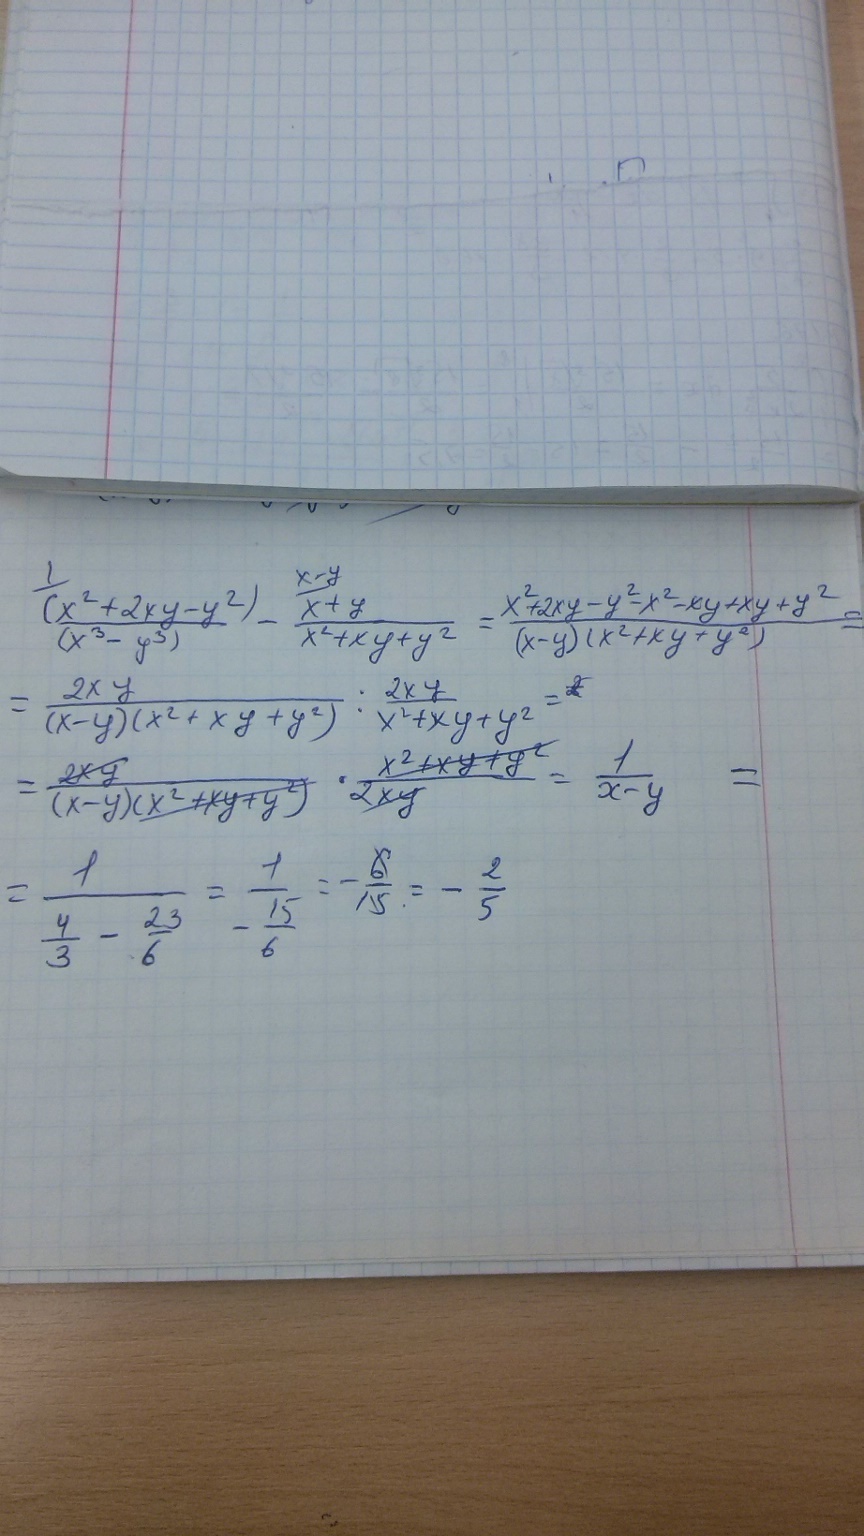 1/ x-y/
(x²+2xy-y²)/(x³-y³) - (x+y)/(x²+xy+y²) = (x²+2xy-y²-x²-xy+xy+y²)/((x-y)(x²+xy+y²)) =
= 2xy/((x-y)(x²+xy+y²)) : 2xy/(x²+xy+y²) =
= 2xy/((x-y)(x²+xy+y²)) · (x²+xy+y²)/2xy = 1/(x-y) =
= 1/(4/3 - 23/6) = 1/(-15/6) = -6/15 = -2/5